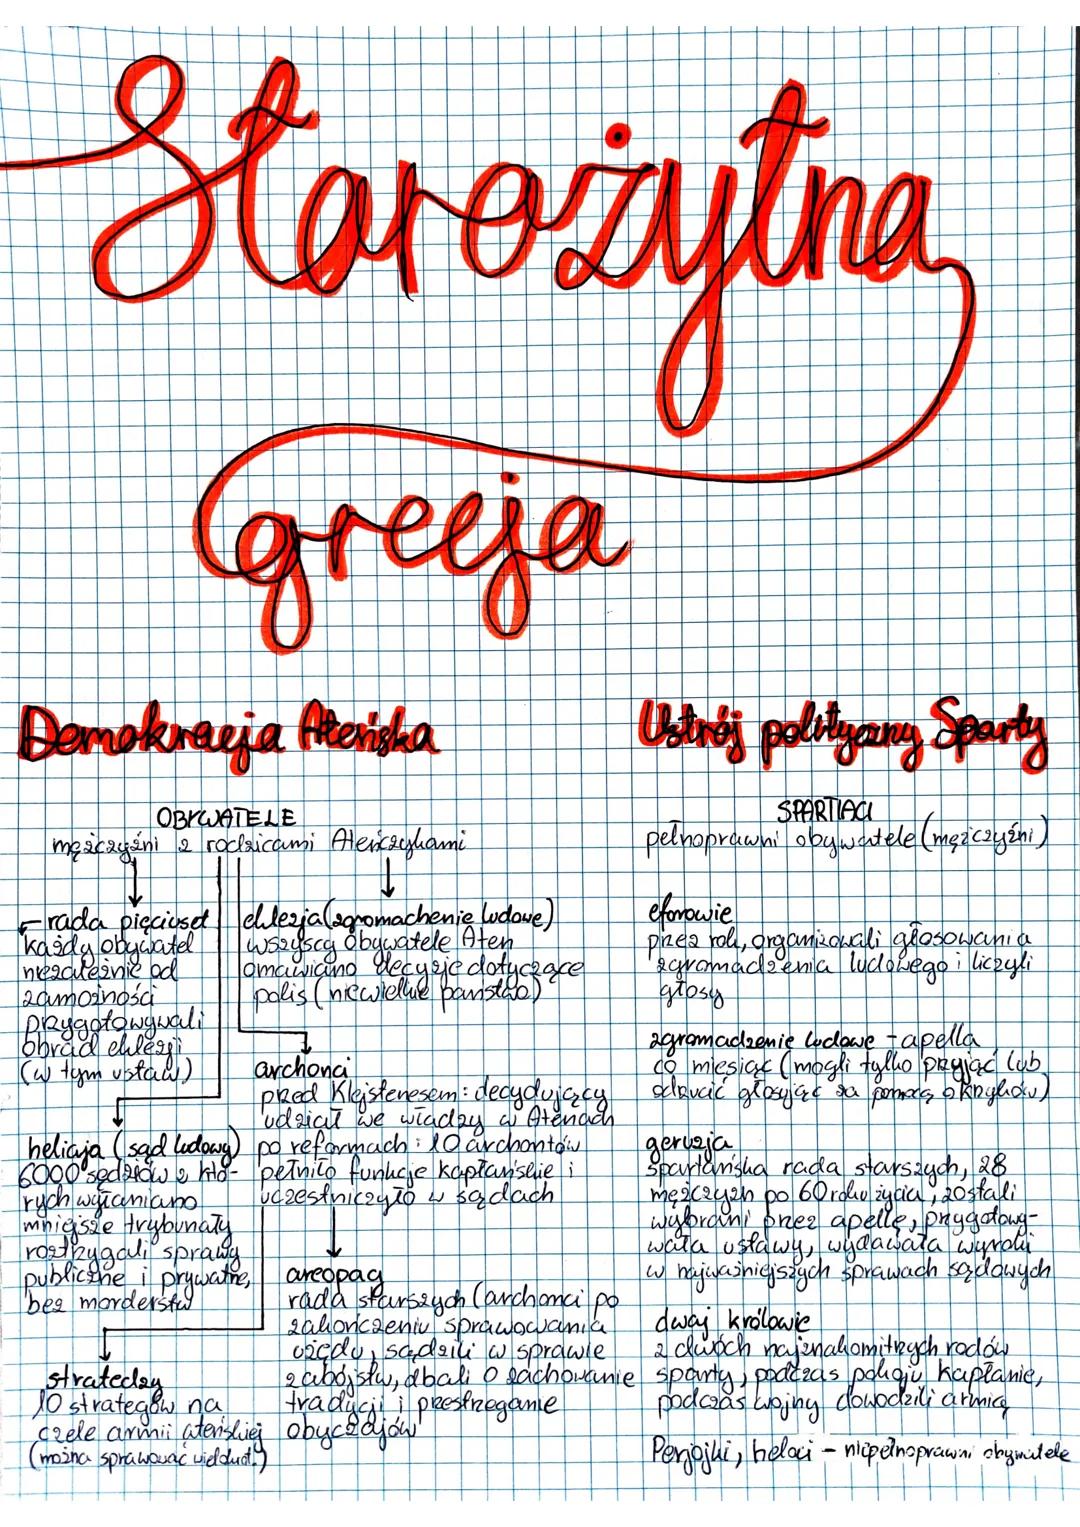 Starożytna
grecja
Demokracja Ateńska
OBYWATELE
mężczyźni z rodzicami Ateńczykami
rada pięciuset
każdy obywatel
niezależnie od
zamożności
przygotowywali
obrad eklezji
(w tym ustaw)
eklezja (zgromadzenie ludowe)
wszyscy obywatele Aten
omawiano decyzje dotyczące
polis (niewielkie państwo)
archonci
przed Klejstenesem: decydujący
udział we władzy w Atenach
po reformach: 10 archontów
pełniło funkcje kapłańskie i
uczestniczyło w sądach
heliaja (sąd ludowy)
6000 sędziów z któ-
rych wyłaniano
mniejsze trybunały
roztrzygali sprawy
publiczne i prywatne,
bez morderstw
areopag
rada starszych (archonci po
zakończeniu sprawowania
urzędu, sądzili w sprawie
zabójstw, dbali o zachowanie
tradycji i przestrzeganie
obyczajów
stratedzy
10 strategów na
czele armii ateńskiej
(można sprawować wielokrot.)
Ustrój polityczny Sparty
SPARTIACI
pełnoprawni obywatele (mężczyźni)
eforowie
przez rok, organizowali głosowania
zgromadzenia ludowego i liczyli
głosy
zgromadzenie ludowe - apella
co miesiąc (mogli tylko przyjąć lub
odrzucić głosując za pomocą okrzyków)
geruzja
spartańska rada starszych, 28
mężczyzn po 60 roku życia, zostali
wybrani przez apellę, przygotowy-
wała ustawy, wydawała wyroki
w najważniejszych sprawach sądowych
dwaj królowie
z dwóch najznakomitrzych rodów
sparty, podczas pokoju kapłanie,
podczas wojny dowodzili armią
Periojki, heloci - niepełnoprawni obywatele